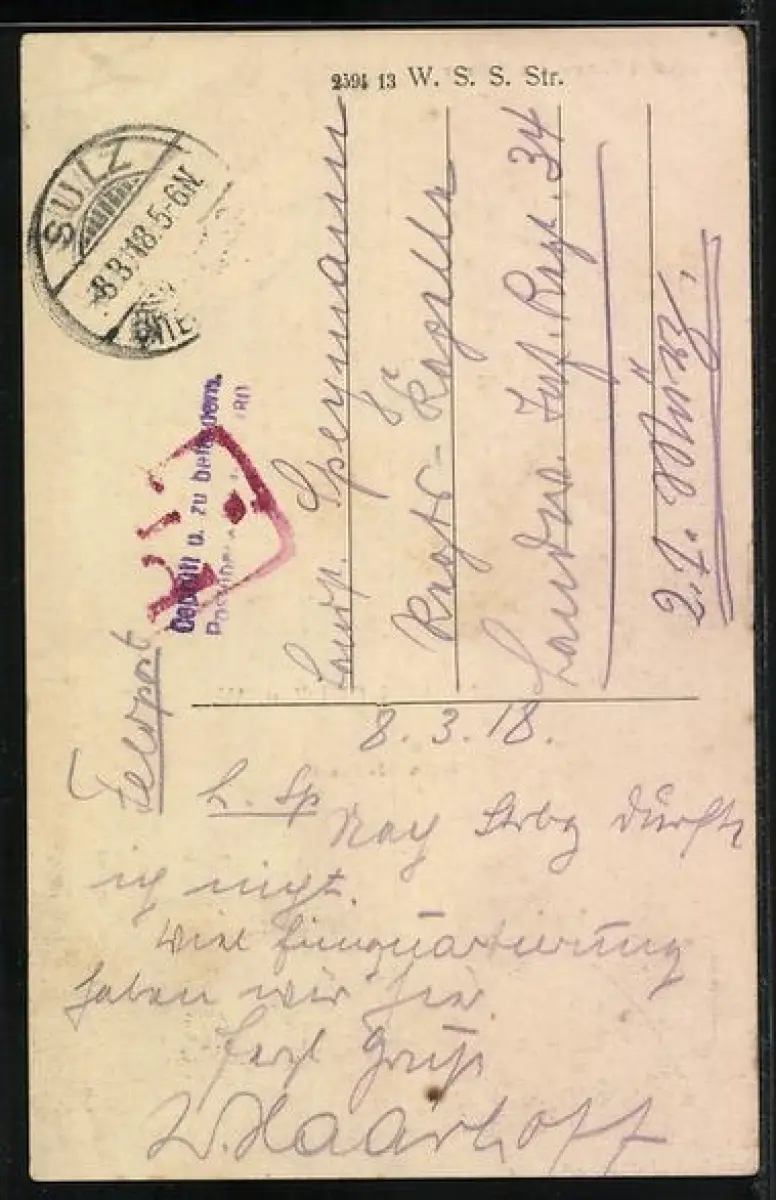 2594 13 W. S. S. Str.
SULZ
8.3.18.5-6N.
Geprüft u. zu befördern.
Feldpost
Landst. Speymann
Regts-Kapelle
Landw. Inf. Reg. 34
z. Z.
8.3.18.
L. Sp
Nach Strbg dürfte
ich nicht.
Viel Einquartierung
haben wir hier.
Herzl Gruß
W. Haarhoff